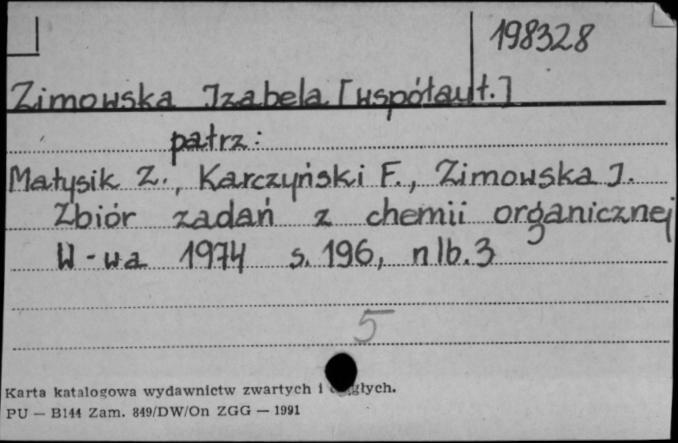 198328
Zimowska Izabela [współaut.]
patrz:
Matysik Z., Karczyński F., Zimowska I.
Zbiór zadań z chemii organicznej
W-wa 1974 s. 196, nlb. 3
5
Karta katalogowa wydawnictw zwartych i
PU — B144 Zam. 849/DW/On ZGG — 1991